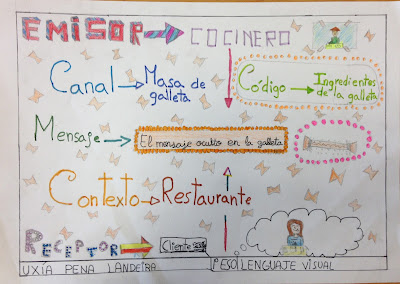 EMISOR COCINERO
Canal Masa de
galleta
Código Ingredientes
de la galleta
Mensaje El mensaje oculto en la galleta
Contexto Restaurante
RECEPTOR Cliente
UXÍA PENA LANDEIRA 1º ESO LENGUAJE VISUAL